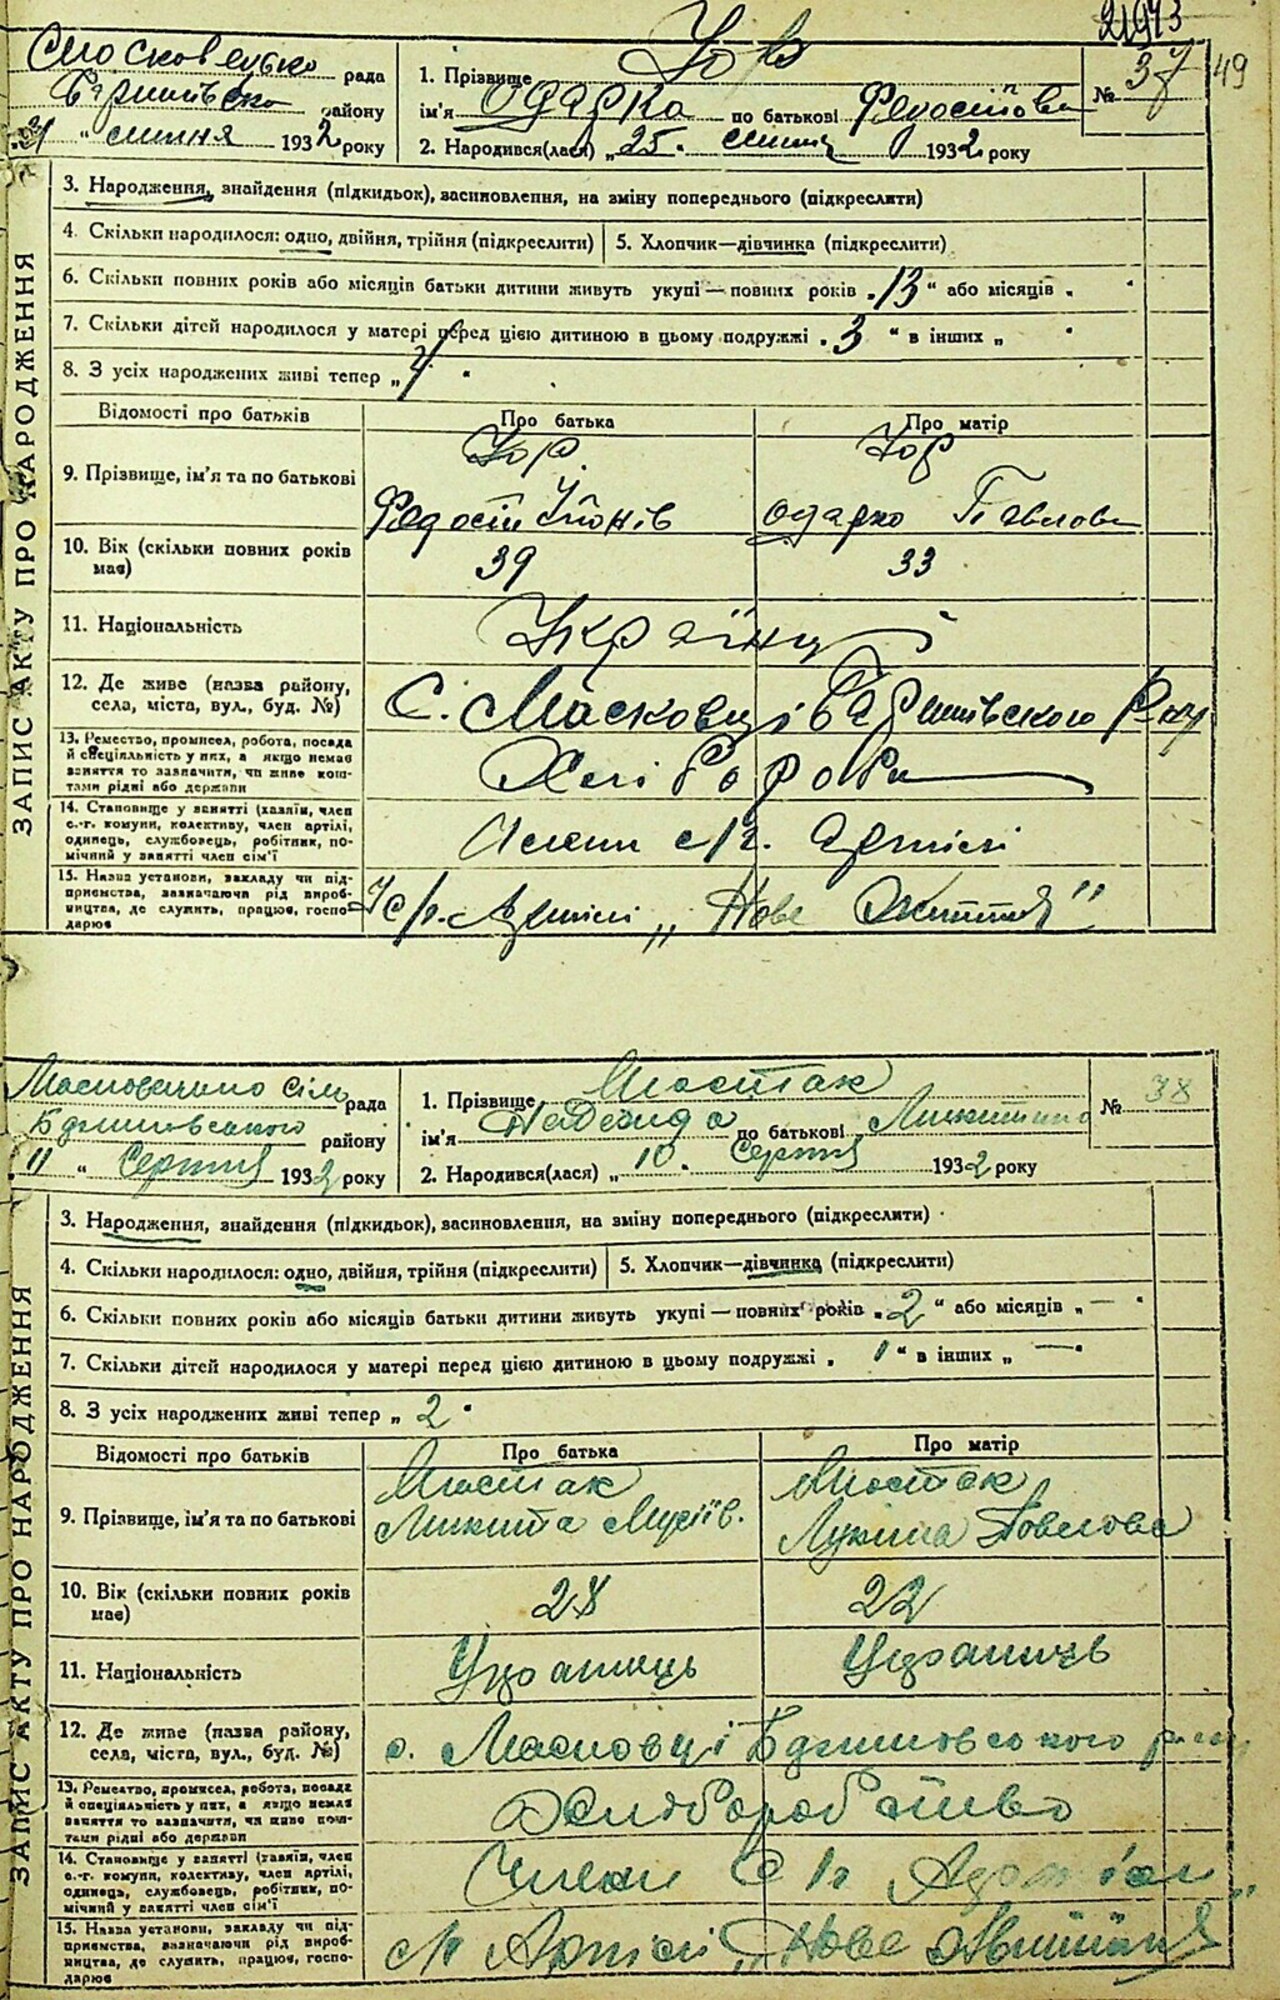 рада
району
193 2 року
1. Прізвище
ім'я Одарка по батькові
2. Народився(лася) „ 25 " 193 2 року
№ 37
49
ЗАПИС АКТУ ПРО НАРОДЖЕННЯ
3. Народження, знайдення (підкидьок), засиновлення, на зміну попереднього (підкреслити)
4. Скільки народилося: одно, двійня, трійня (підкреслити) 5. Хлопчик—дівчинка (підкреслити)
6. Скільки повних років або місяців батьки дитини живуть укупі — повних років „ 13 " або місяців „ "
7. Скільки дітей народилося у матері перед цією дитиною в цьому подружжі „ 3 " в інших „ "
8. З усіх народжених живі тепер „ 4 "
Відомості про батьків Про батька Про матір
9. Прізвище, ім'я та по батькові
Одарка Павлова
10. Вік (скільки повних років має) 39 33
11. Національність Українці
12. Де живе (назва району, села, міста, вул., буд. №) с. Масковці
13. Ремество, промисел, робота, посада й спеціяльність у них, а якщо немає заняття то зазначити, чи живе коштами рідні або держави
14. Становище у занятті (хазяїн, член с.-г. комуни, колективу, член артілі, одинець, службовець, робітник, помічний у занятті член сім'ї Члени с/г. Артілі
15. Назва установи, закладу чи підприємства, зазначаючи рід виробництва, де служить, працює, господарює У с/г. Артілі „Нове Життя"
рада
району
„11" Серпня 193 2 року
1. Прізвище Шостак
ім'я Надежда по батькові Микитина
2. Народився(лася) „ 10 " Серпня 193 2 року
№ 38
ЗАПИС АКТУ ПРО НАРОДЖЕННЯ
3. Народження, знайдення (підкидьок), засиновлення, на зміну попереднього (підкреслити)
4. Скільки народилося: одно, двійня, трійня (підкреслити) 5. Хлопчик—дівчинка (підкреслити)
6. Скільки повних років або місяців батьки дитини живуть укупі — повних років „ 2 " або місяців „ — "
7. Скільки дітей народилося у матері перед цією дитиною в цьому подружжі „ 1 " в інших „ — "
8. З усіх народжених живі тепер „ 2 "
Відомості про батьків Про батька Про матір
Шостак Шостак
9. Прізвище, ім'я та по батькові Микита Мусіїв. Павлова
10. Вік (скільки повних років має) 28 22
11. Національність
12. Де живе (назва району, села, міста, вул., буд. №) с. Масковці
13. Ремество, промисел, робота, посада й спеціяльність у них, а якщо немає заняття то зазначити, чи живе коштами рідні або держави Хліборобство
14. Становище у занятті (хазяїн, член с.-г. комуни, колективу, член артілі, одинець, службовець, робітник, помічний у занятті член сім'ї Члени с/г
15. Назва установи, закладу чи підприємства, зазначаючи рід виробництва, де служить, працює, господарює с/г Артілі „Нове Життя"